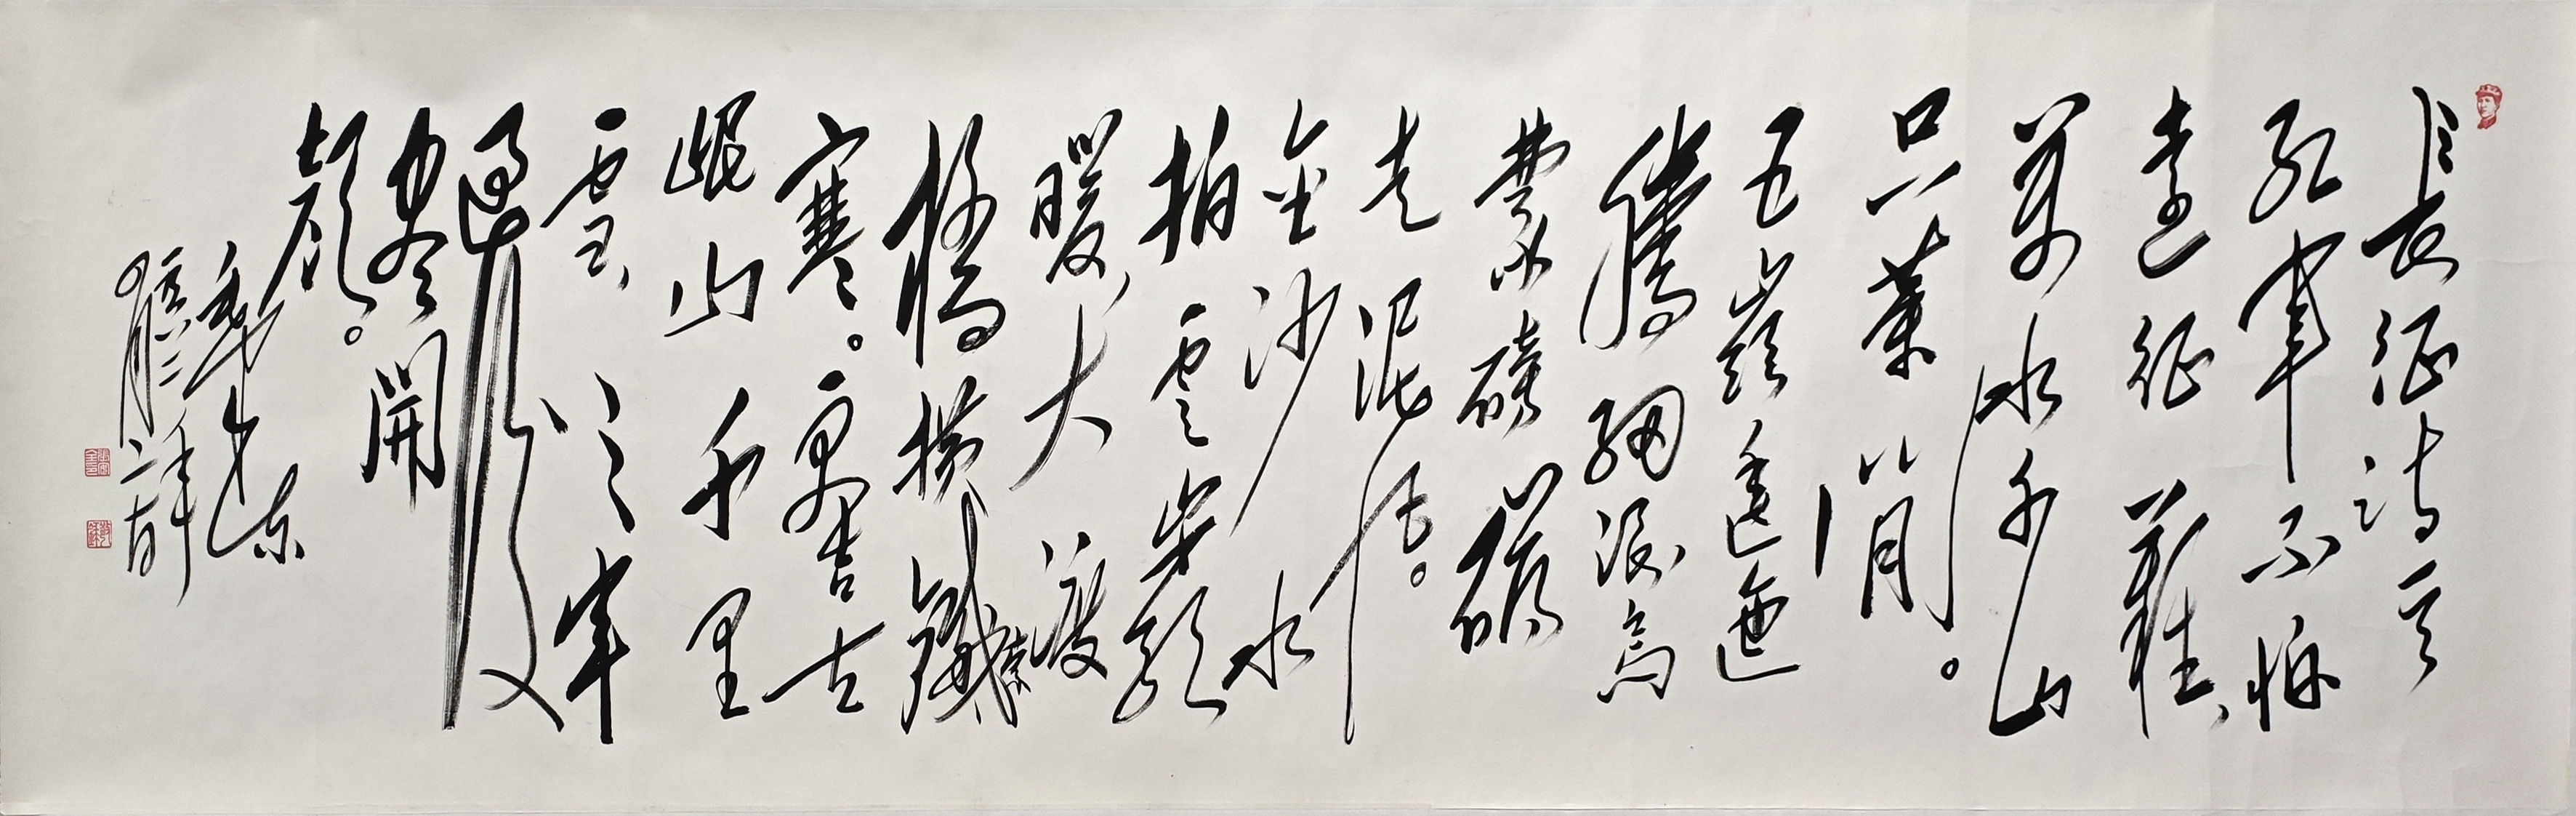 長征詩一首
紅軍不怕
遠征難，
萬水千山
只等閒。
五嶺逶迤
騰細浪烏
蒙磅礴
走泥丸。
金沙水
拍雲崖
暖，大渡
橋橫鐵索
寒。更喜
岷山千里
雪，三軍
過後
盡開
顏。
毛澤東